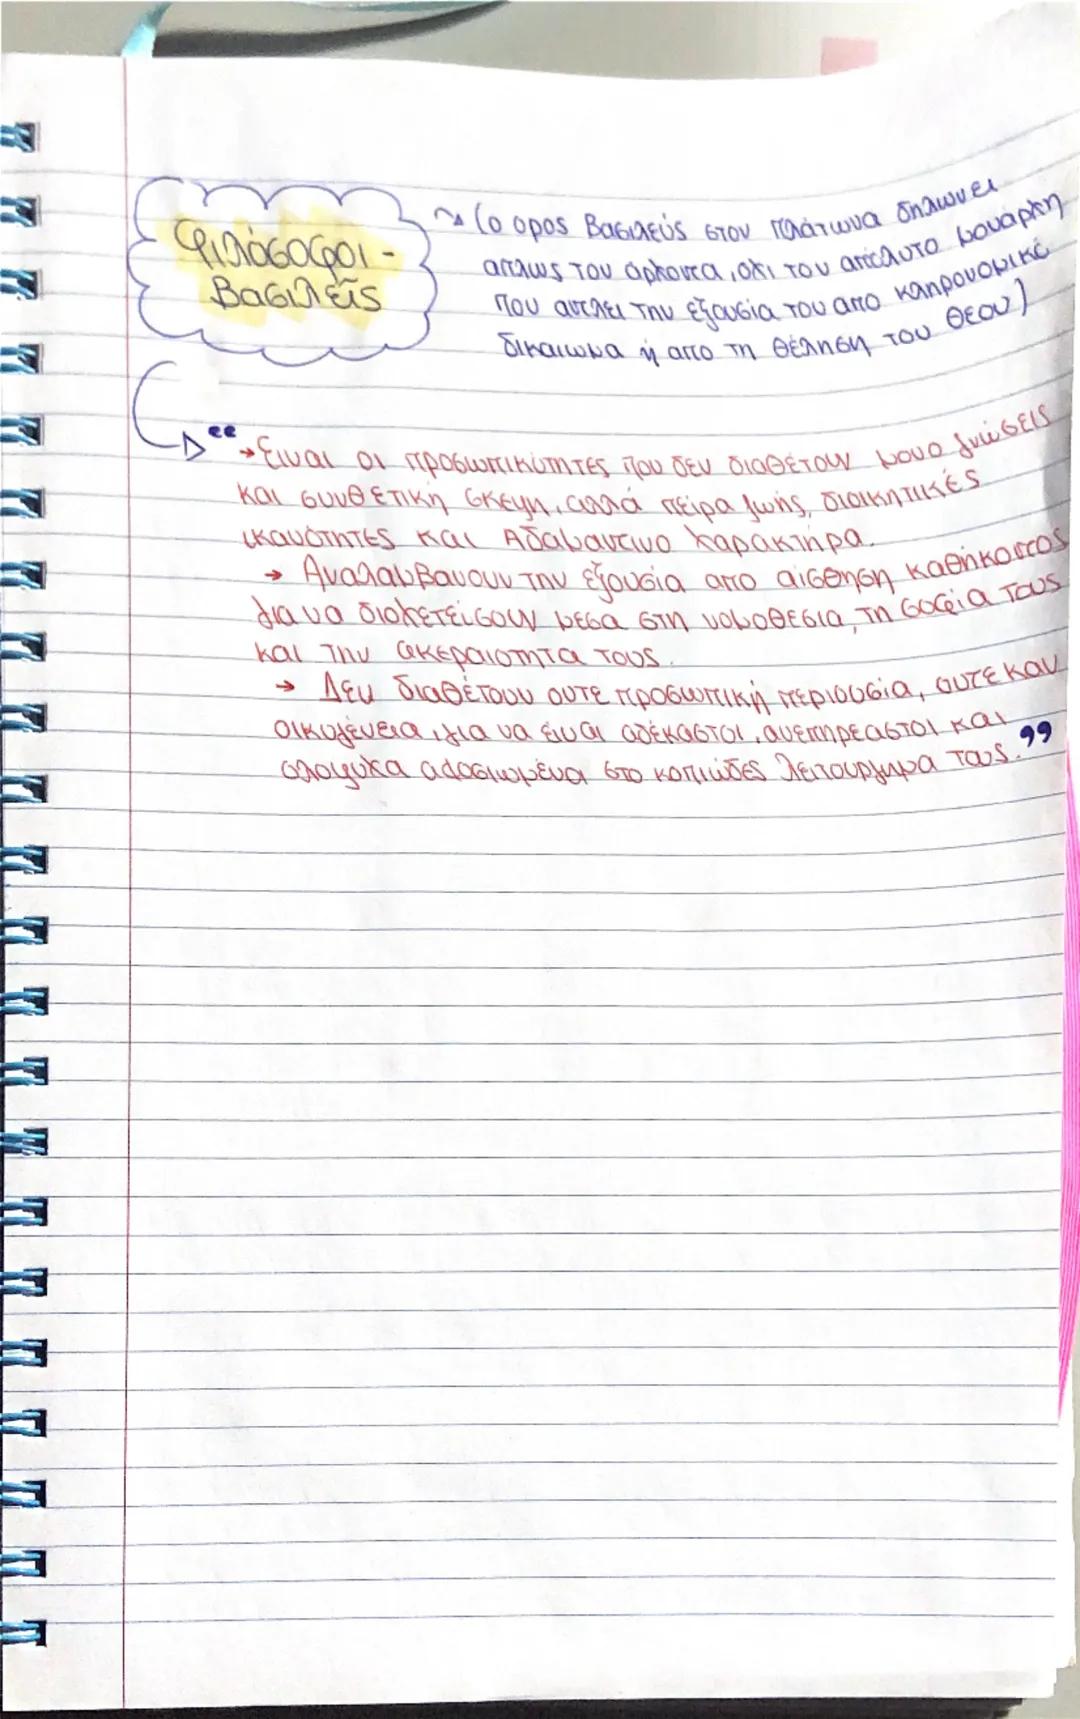 Φιλόσοφοι -
Βασιλεῖς
(ο ορος Βασιλεύς στον Πλάτωνα δηλωνει
απλως τον άρχοντα, οχι τον απόλυτο μονάρχη
που αντλει την εξουσία του απο κληρονομικό
δικαιωμα ή απο τη θέληση του Θεου)
“→ Ειναι οι προσωπικότητες που δεν διαθέτουν μονο γνώσεις
και συνθετική σκεψη, αλλά πείρα ζωής, διοικητικές
ικανότητες και Αδαμαντινο χαρακτηρα.
→ Αναλαμβανουν την εξουσία απο αίσθηση καθήκοντος
για να διοχετείσουν μεσα στη νομοθεσια, τη σοφία τους
και την ακεραιοτητα τους.
→ Δεν διαθέτουν ουτε προσωπική περιουσία, ουτε καν
οικογένεια, για να ειναι αδέκαστοι, ανεπηρεαστοι και
ολοψυχα αφοσιωμένα στο κοπιώδες λειτουργημα τους.”